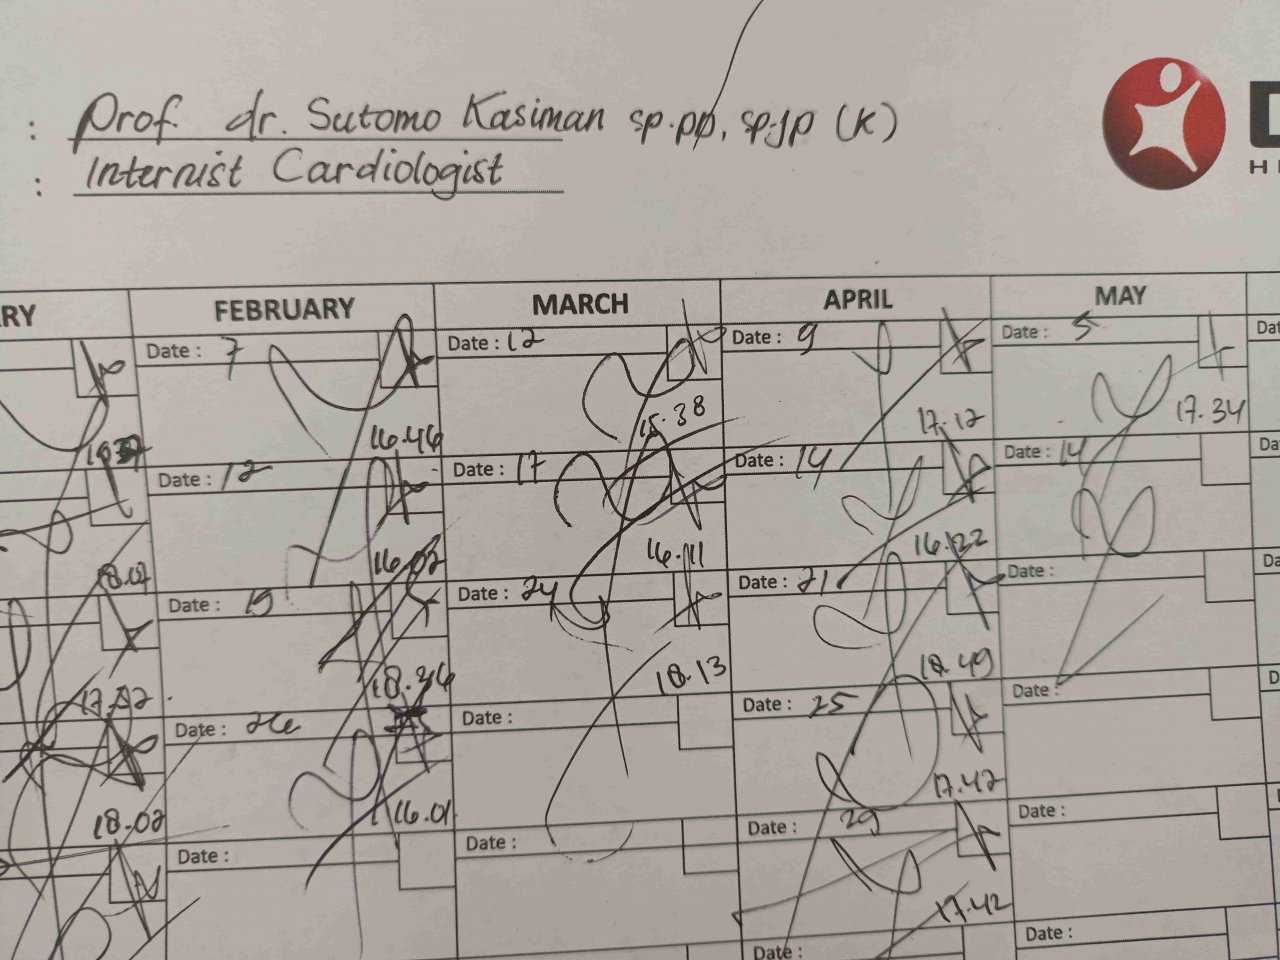 : Prof. dr. Sutomo Kasiman sp.pp, sp.jp (K)
: Internist Cardiologist
D
H
RY FEBRUARY MARCH APRIL MAY
Date : 7 Date : 12 Date : 9 Date : 5 Dat
16.46 15.38 17.12 17.34
Date : 12 Date : 17 Date : 14 Date : 14 Da
18.07 16.02 16.11 16.22
Date : 19 Date : 24 Date : 21 Date : Da
17.52 18.36 18.13 18.49
Date : 26 Date : Date : 25 Date : D
18.02 16.01 17.42
Date : Date : Date : 29 Date :
17.42
Date : Date :